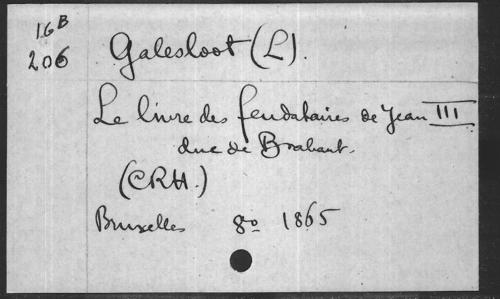 16B
206 Galesloot (L).
Le livre des feudataires de Jean III
duc de Brabant.
(CRH.)
Bruxelles 8o 1865